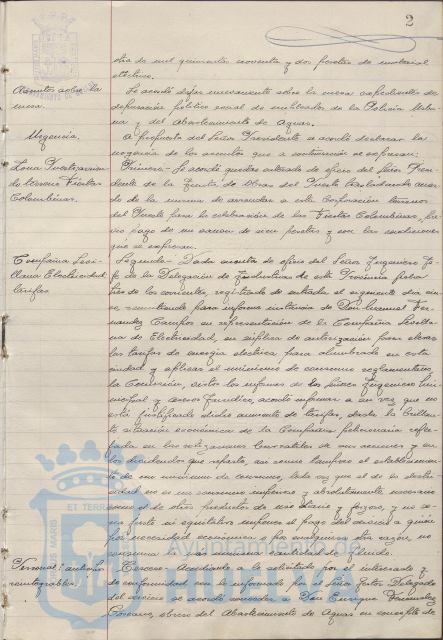 2
dia de mil quinientas noventa y dos pesetas de material
eléctrico.
Asuntos sobre la
mesa.
Se acordó dejar nuevamente sobre la mesa expedientes de
depuración político social de empleados de la Policía Urba-
na y del Abastecimiento de Aguas.
Urgencia.
A propuesta del Señor Presidente se acordó declarar la
urgencia de los asuntos que a continuación se expresan:
Zona
Fiestas
Colombinas.
Primero. Se acordó quedar enterado de oficio del Señor Presi-
dente de la Junta de Obras del Puerto trasladando acuer-
do de la misma de arrendar a esta Corporación terrenos
del Puerto para la celebración de las Fiestas Colombinas, pre-
vio pago de un canon de cien pesetas y con las condiciones
que se expresan.
Compañía Sevi-
llana Electricidad
tarifas.
Segundo. Dada cuenta de oficio del Señor Ingeniero Je-
fe de la Delegación de Industria de esta Provincia fecha
tres de los corrientes, registrado de entrada el siguiente dia on-
ce, remitiendo para informe instancia de Don Manuel Fer-
nandez Campos en representación de la Compañía Sevilla-
na de Electricidad, en súplica de autorización para elevar
las tarifas de energía eléctrica para alumbrado en esta
ciudad y aplicar el mínimo de consumo reglamentario,
la Comisión, vistos los informes de los Señores Ingeniero Mu-
nicipal y Asesor Jurídico, acordó informar a su vez que no
está justificado dicho aumento de tarifas, dada la
situación económica de la Compañía peticionaria refle-
jada en las cotizaciones de sus acciones y en
los dividendos que reparte, así como tampoco el establecimien-
to de un mínimo de consumo, toda vez que el de la electri-
cidad no es un consumo y absolutamente necesario
como el de otros productos de uso diario y forzoso, y no se-
ría justo ni equitativo imponer el pago del servicio a quien
por necesidad económica o por cualquiera otra razón, no
consuma cantidad de fluido.
Personal: anticipo
reintegrable.
Tercero. Accediendo a lo solicitado por el interesado y
de conformidad con lo informado por el Señor Gestor Delegado
del servicio se acordó conceder a Don Enrique Fernandez
obrero del Abastecimiento de Aguas en concepto de
Ayuntamiento de